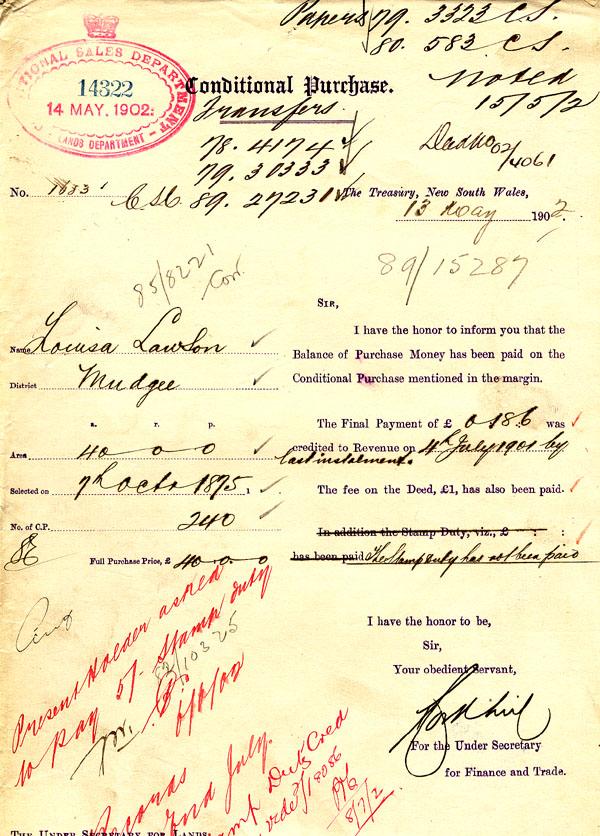 Papers 79. 3323 C.S.
80. 583 C.S.
Noted
15/5/2
CONDITIONAL SALES DEPARTMENT
14322
14 MAY. 1902
LANDS DEPARTMENT
Conditional Purchase.
Transfers
78. 4174
79. 30333
89. 27231
Deed No 02/4061
No. 1833
The Treasury, New South Wales,
13 May 1902.
85/8221
Cor.
89/15287
Sir,
I have the honor to inform you that the
Balance of Purchase Money has been paid on the
Conditional Purchase mentioned in the margin.
Name Louisa Lawson
District Mudgee
a. r. p.
Area 40 0 0
Selected on 7th Octr 1875
No. of C.P. 240
Full Purchase Price, £ 40 0 0
The Final Payment of £ 0 18 6 was
credited to Revenue on 4th July 1901 by
last instalment.
The fee on the Deed, £1, has also been paid.
In addition the Stamp Duty, viz., £ : :
has been paid The Stamp duty has not been paid
Present Holder asked
to pay 5/ Stamp duty
02/10325
6/6/02
I have the honor to be,
Sir,
Your obedient Servant,
For the Under Secretary
for Finance and Trade.
Records
2nd July.
Stamp Duty Cred
vide 2/18086
8/7/2
The Under Secretary for Lands: